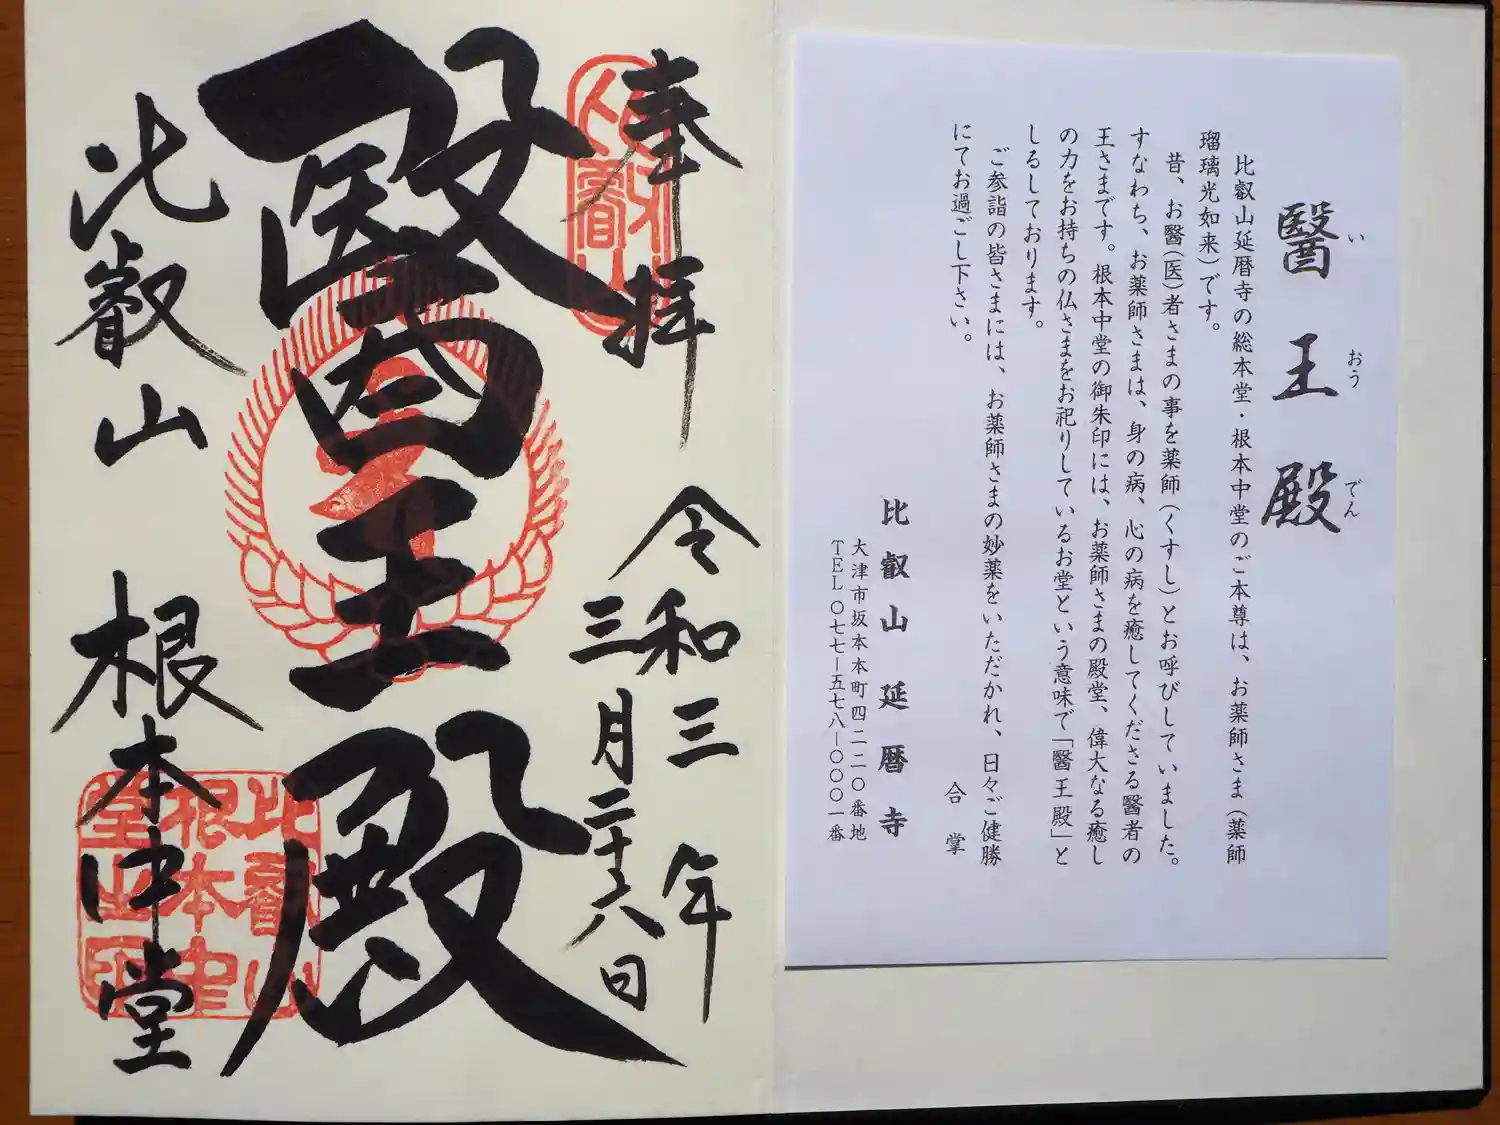 醫王殿
い おう でん
比叡山延暦寺の総本堂・根本中堂のご本尊は、お薬師さま(薬師
瑠璃光如来)です。
昔、お醫(医)者さまの事を薬師(くすし)とお呼びしていました。
すなわち、お薬師さまは、身の病、心の病を癒してくださる醫者の
王さまです。根本中堂の御朱印には、お薬師さまの殿堂、偉大なる癒し
の力をお持ちの仏さまをお祀りしているお堂という意味で「醫王殿」と
しるしております。
ご参詣の皆さまには、お薬師さまの妙薬をいただかれ、日々ご健勝
にてお過ごし下さい。
合掌
比叡山延暦寺
大津市坂本本町四二二〇番地
TEL〇七七―五七八―〇〇〇一番
奉拝
令和三年
三月二十六日
醫王殿
比叡山 根本中堂
比叡山
比叡山
根本中
堂之印